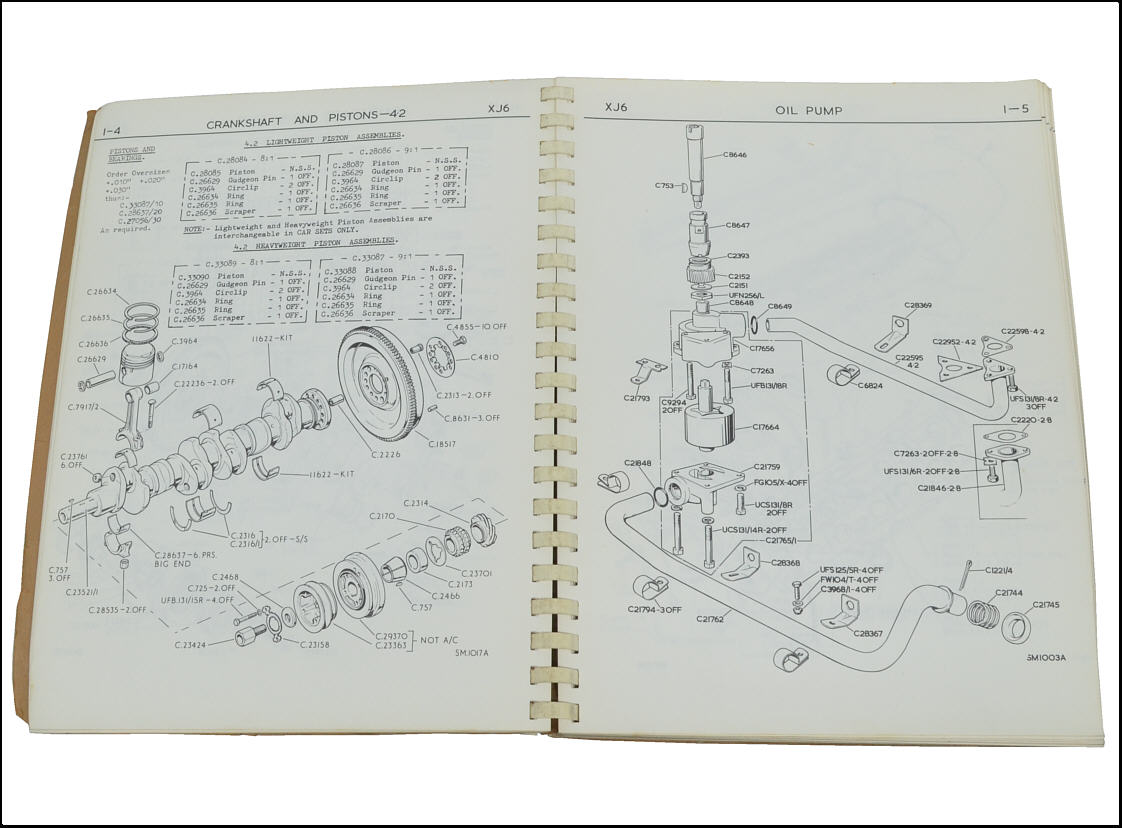 1-4
CRANKSHAFT AND PISTONS—4·2
XJ6
PISTONS AND
BEARINGS.
Order Oversizes
+.010" +.020"
+.030"
thus:-
C.33087/10
C.28637/20
C.27056/30
As required.
4.2 LIGHTWEIGHT PISTON ASSEMBLIES.
C.28084 - 8:1
C.28085 Piston - N.S.S.
C.26629 Gudgeon Pin - 1 OFF.
C.3964 Circlip - 2 OFF.
C.26634 Ring - 1 OFF.
C.26635 Ring - 1 OFF.
C.26636 Scraper - 1 OFF.
C.28086 - 9:1
C.28087 Piston - N.S.S.
C.26629 Gudgeon Pin - 1 OFF.
C.3964 Circlip - 2 OFF.
C.26634 Ring - 1 OFF.
C.26635 Ring - 1 OFF.
C.26636 Scraper - 1 OFF.
NOTE:- Lightweight and Heavyweight Piston Assemblies are
interchangeable in CAR SETS ONLY.
4.2 HEAVYWEIGHT PISTON ASSEMBLIES.
C.33089 - 8:1
C.33090 Piston - N.S.S.
C.26629 Gudgeon Pin - 1 OFF.
C.3964 Circlip - 2 OFF.
C.26634 Ring - 1 OFF.
C.26635 Ring - 1 OFF.
C.26636 Scraper - 1 OFF.
C.33087 - 9:1
C.33088 Piston - N.S.S.
C.26629 Gudgeon Pin - 1 OFF.
C.3964 Circlip - 2 OFF.
C.26634 Ring - 1 OFF.
C.26635 Ring - 1 OFF.
C.26636 Scraper - 1 OFF.
C.26634
C.26635
C.26636
C.26629
C.3964
C.17164
C.22236-2.OFF
C.7917/2
11622-KIT
C.4855-10.OFF
C.4810
C.2313-2.OFF
C.8631-3.OFF
C.18517
C.2226
C.23761
6.OFF
11622-KIT
C.2316
C.2316/1
2.OFF-S/S
C.28637-6.PRS.
BIG END
C.757
3.OFF
C.23521/1
C.28535-2.OFF
C.2314
C.2170
C.23701
C.2173
C.2466
C.757
C.2468
C.725-2.OFF
UFB.131/15R-4.OFF
C.23424
C.23158
C.29370
C.23363
NOT A/C
5M.1017A
XJ6
OIL PUMP
1—5
C8646
C753
C8647
C2393
C2152
C2151
UFN256/L
C8648
C8649
C17656
C7263
UFB131/18R
C9294
2OFF
C21793
C17664
C28369
C22598-4·2
C22952-4·2
C22595
4·2
C6824
UFS131/8R-4·2
3OFF
C2220-2·8
C7263-2OFF-2·8
UFS131/6R-2OFF-2·8
C21846-2·8
C21848
C21759
FG105/X-4OFF
UCS131/8R
2OFF
UCS131/14R-2OFF
C21765/1
C28368
C21794-3OFF
C21762
UFS125/5R-4OFF
FW104/T-4OFF
C3968/1-4OFF
C28367
C1221/4
C21744
C21745
5M1003A